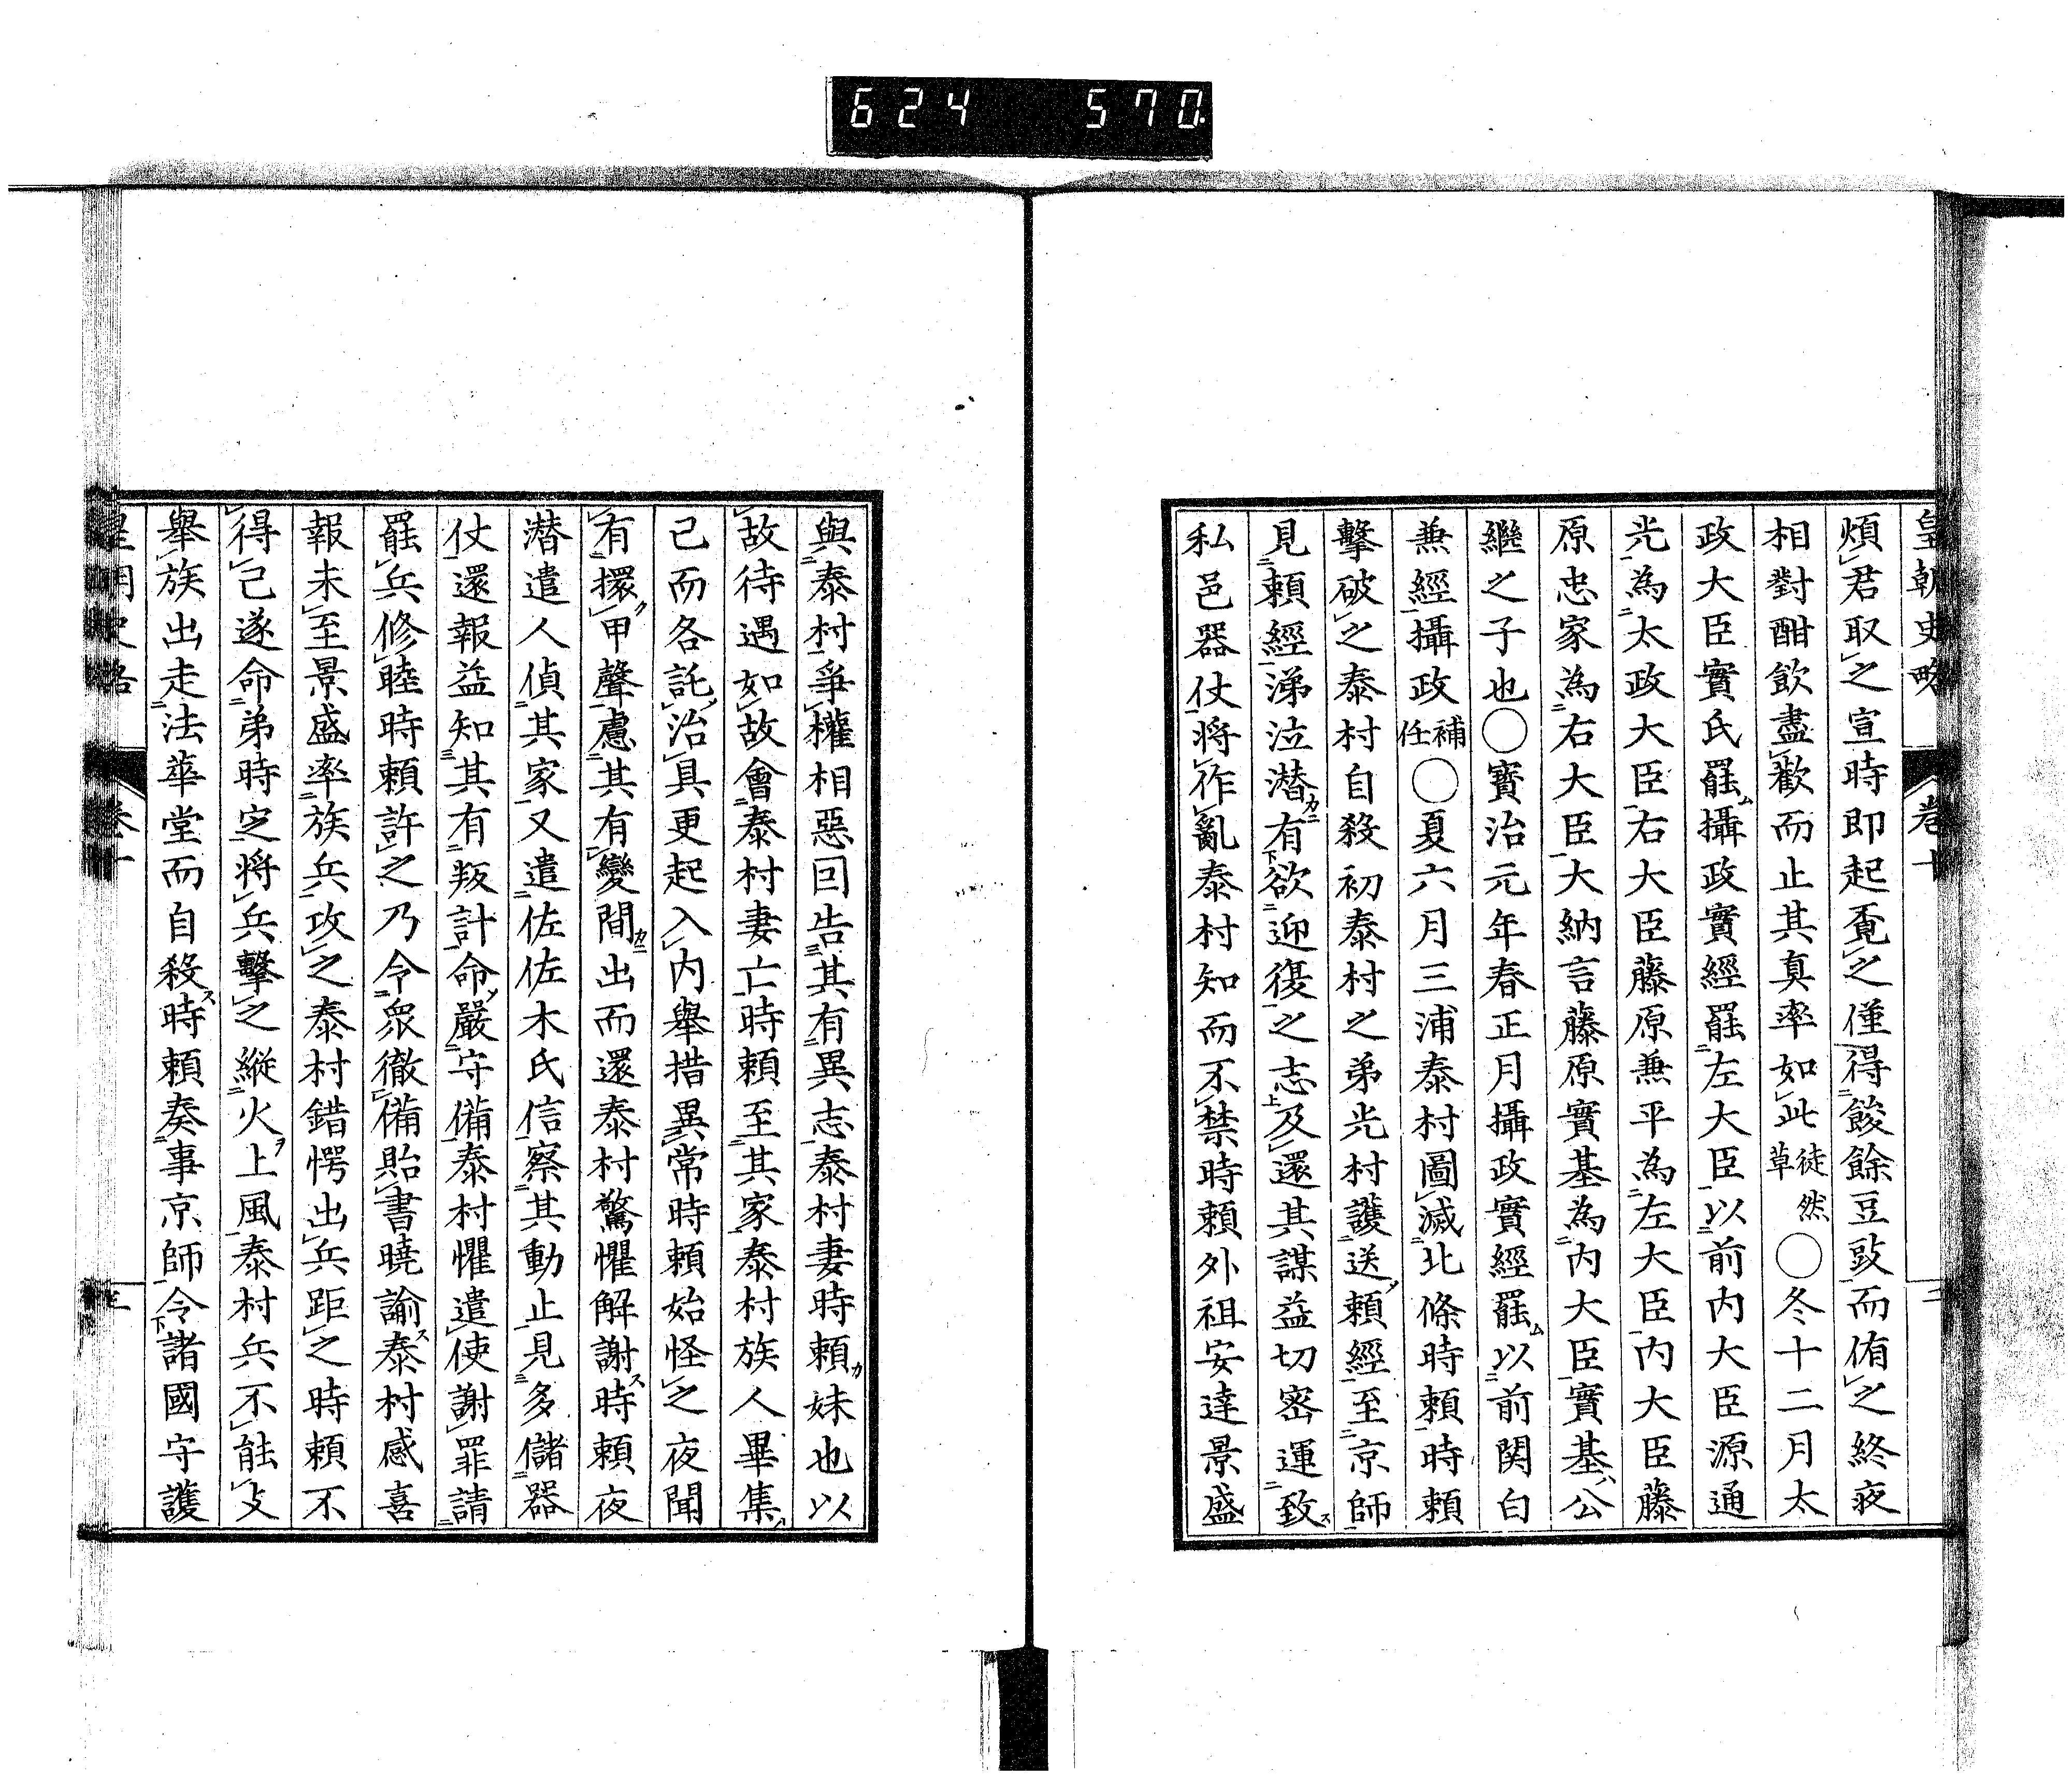 624 570
皇朝史略 卷十 二
煩君取之宣時即起覔之僅得餕餘豆豉而侑之終夜
相對酣飲盡歡而止其真率如此徒然草〇冬十二月太
政大臣實氏罷攝政實經罷左大臣以前内大臣源通
光為太政大臣右大臣藤原兼平為左大臣内大臣藤
原忠家為右大臣大納言藤原實基為内大臣實基公
繼之子也〇寶治元年春正月攝政實經罷以前関白
兼經攝政補任〇夏六月三浦泰村圖滅北條時頼時頼
擊破之泰村自殺初泰村之弟光村護送頼經至京師
見頼經涕泣潜有欲迎復之志及還其謀益切密運致
私邑器仗将作亂泰村知而不禁時頼外祖安達景盛
與泰村爭權相惡回告其有異志泰村妻時頼妹也以
故待遇如故會泰村妻亡時頼至其家泰村族人畢集
己而各託治具更起入内舉措異常時頼始怪之夜聞
有擐甲聲慮其有變間出而還泰村驚懼解謝時頼夜
潜遣人偵其家又遣佐佐木氏信察其動止見多儲器
仗還報益知其有叛計命嚴守備泰村懼遣使謝罪請
罷兵修睦時頼許之乃令衆徹備貽書曉諭泰村感喜
報未至景盛率族兵攻之泰村錯愕出兵距之時頼不
得已遂命弟時定将兵擊之縦火上風泰村兵不能支
舉族出走法華堂而自殺時頼奏事京師令諸國守護
皇朝史略 卷十